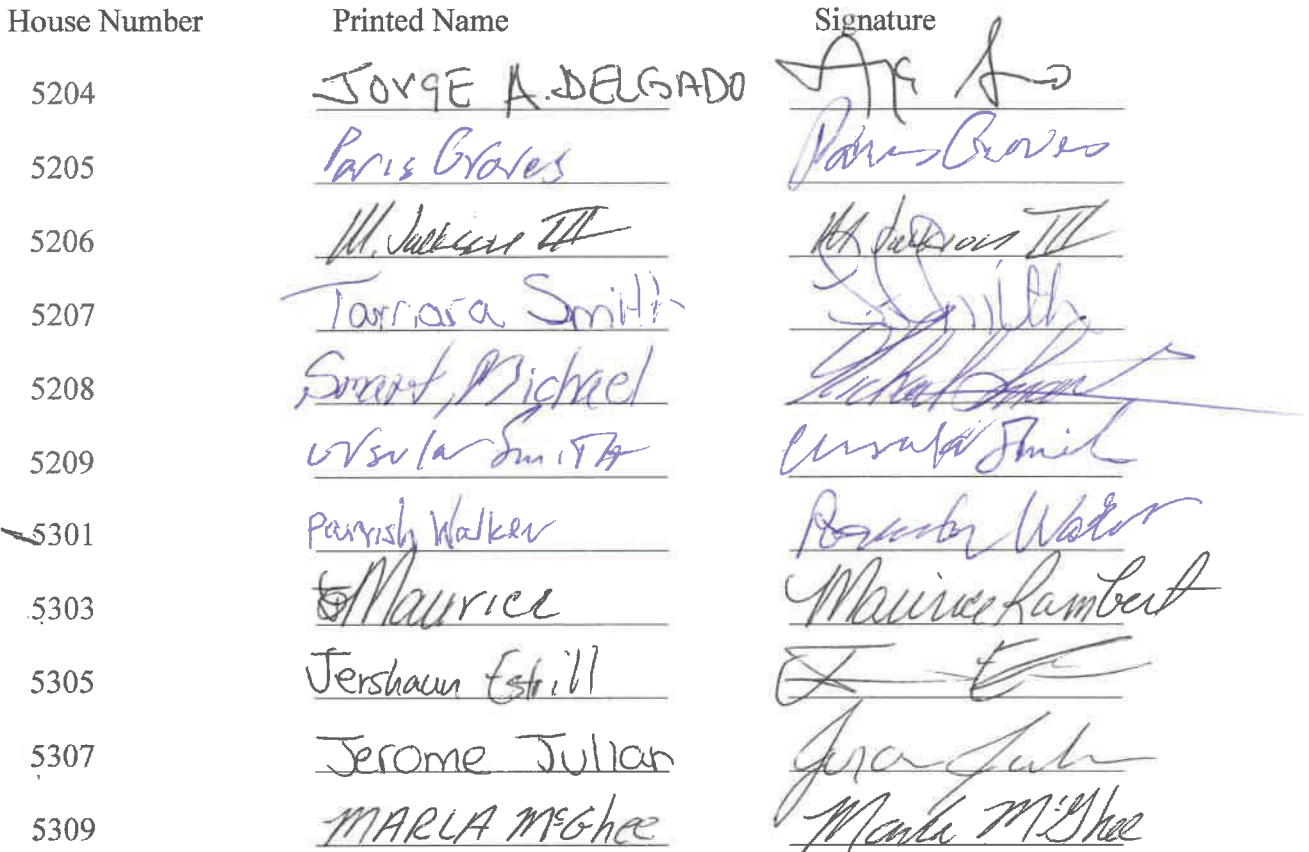 House Number Printed Name Signature
5204 JORGE A. DELGADO
5205 Paris Graves Paris Graves
5206 M. Jackson III M. Jackson III
5207 Tamara Smith Smith
5208 Smart, Michael Michael Smart
5209 Ursula Smith Ursula Smith
5301 Parrish Walker Walker
5303 Maurice Maurice Lambert
5305 Jershaun Estrill
5307 Jerome Julian
5309 MARLA McGhee Marla McGhee